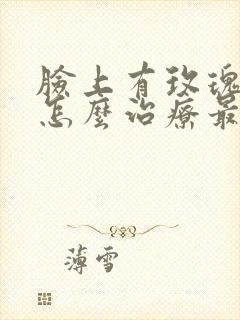 臉上有玫瑰
怎麼治療最
薄雪